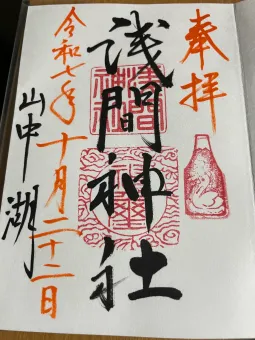 奉拝
浅間神社
山中湖
令和七年十月二十二日